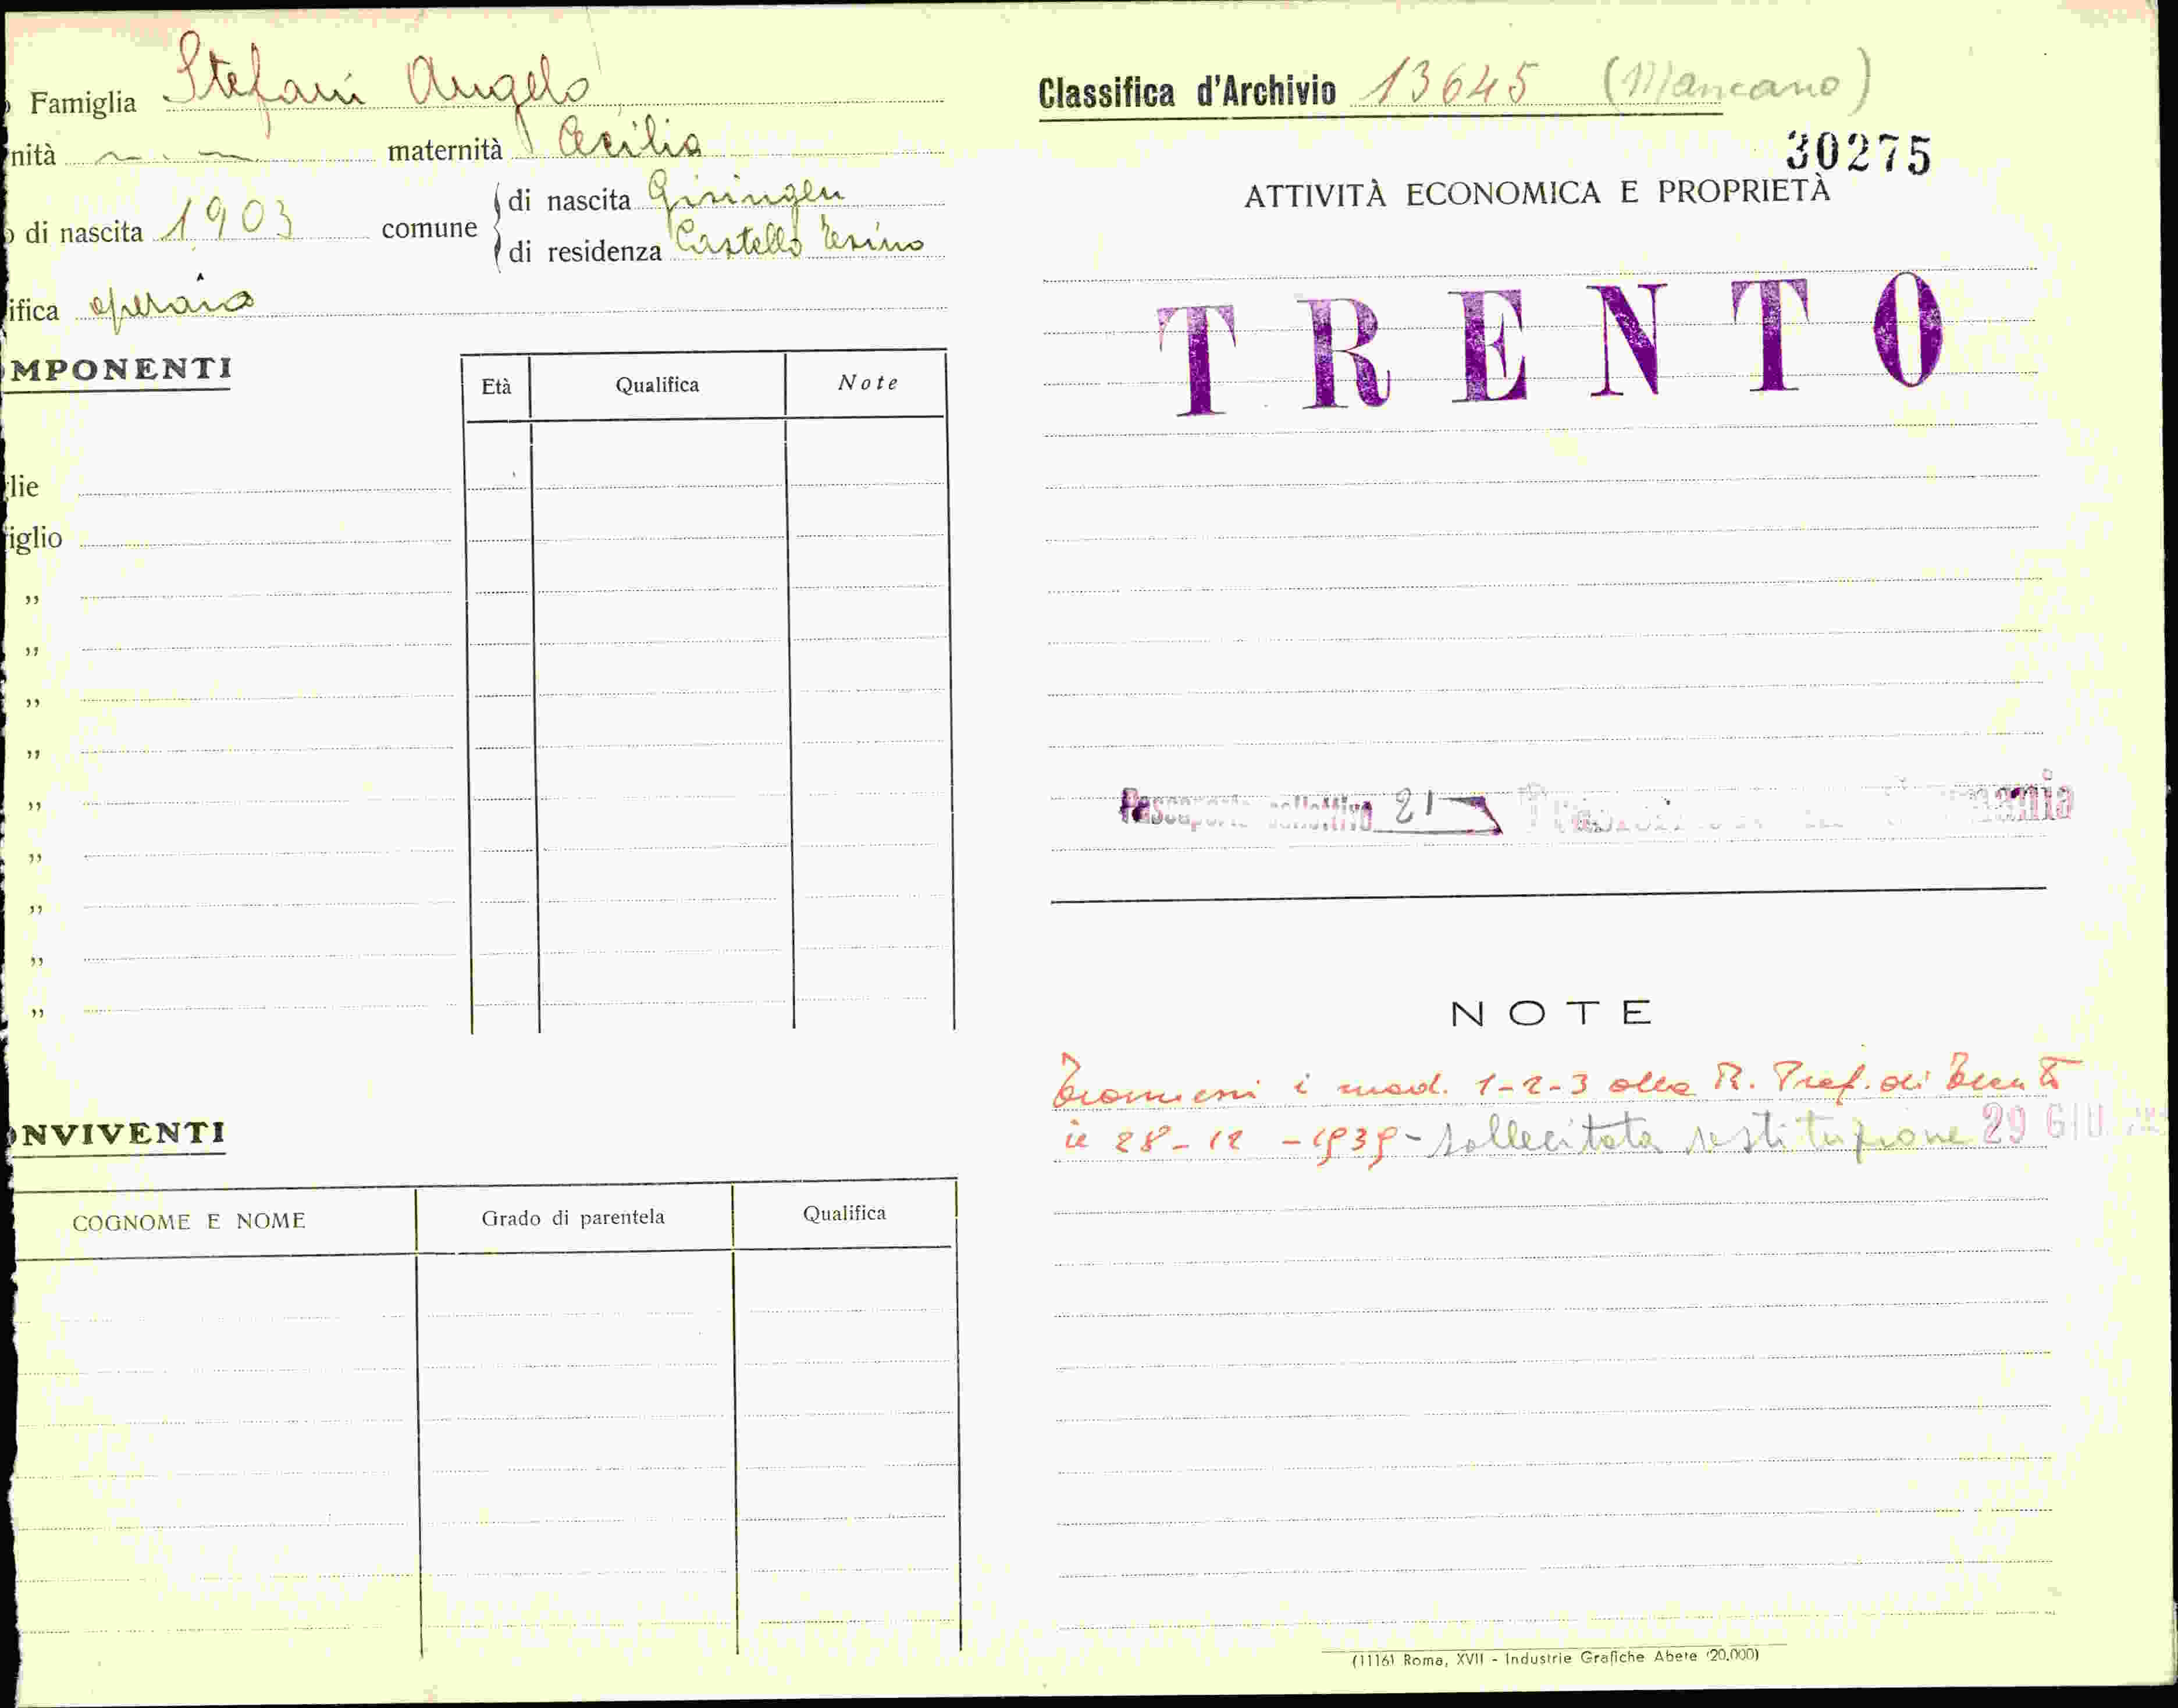 Famiglia Stefani Angelo
nità maternità Cecilia
di nascita 1903 comune di nascita Gisingen
di residenza Castello Tesino
ifica operaio
MPONENTI
Età Qualifica Note
lie
iglio
,,
,,
,,
,,
,,
,,
,,
,,
,,
NVIVENTI
COGNOME E NOME Grado di parentela Qualifica
Classifica d'Archivio 13645 (Mancano)
30275
ATTIVITÀ ECONOMICA E PROPRIETÀ
TRENTO
Passaporto collettivo 21
NOTE
Trasmessi i mod. 1-2-3 alla R. Pref. di Trento
il 28-12-1939 - sollecitata restituzione 29 GIU
(1116) Roma, XVII - Industrie Grafiche Abete (20.000)